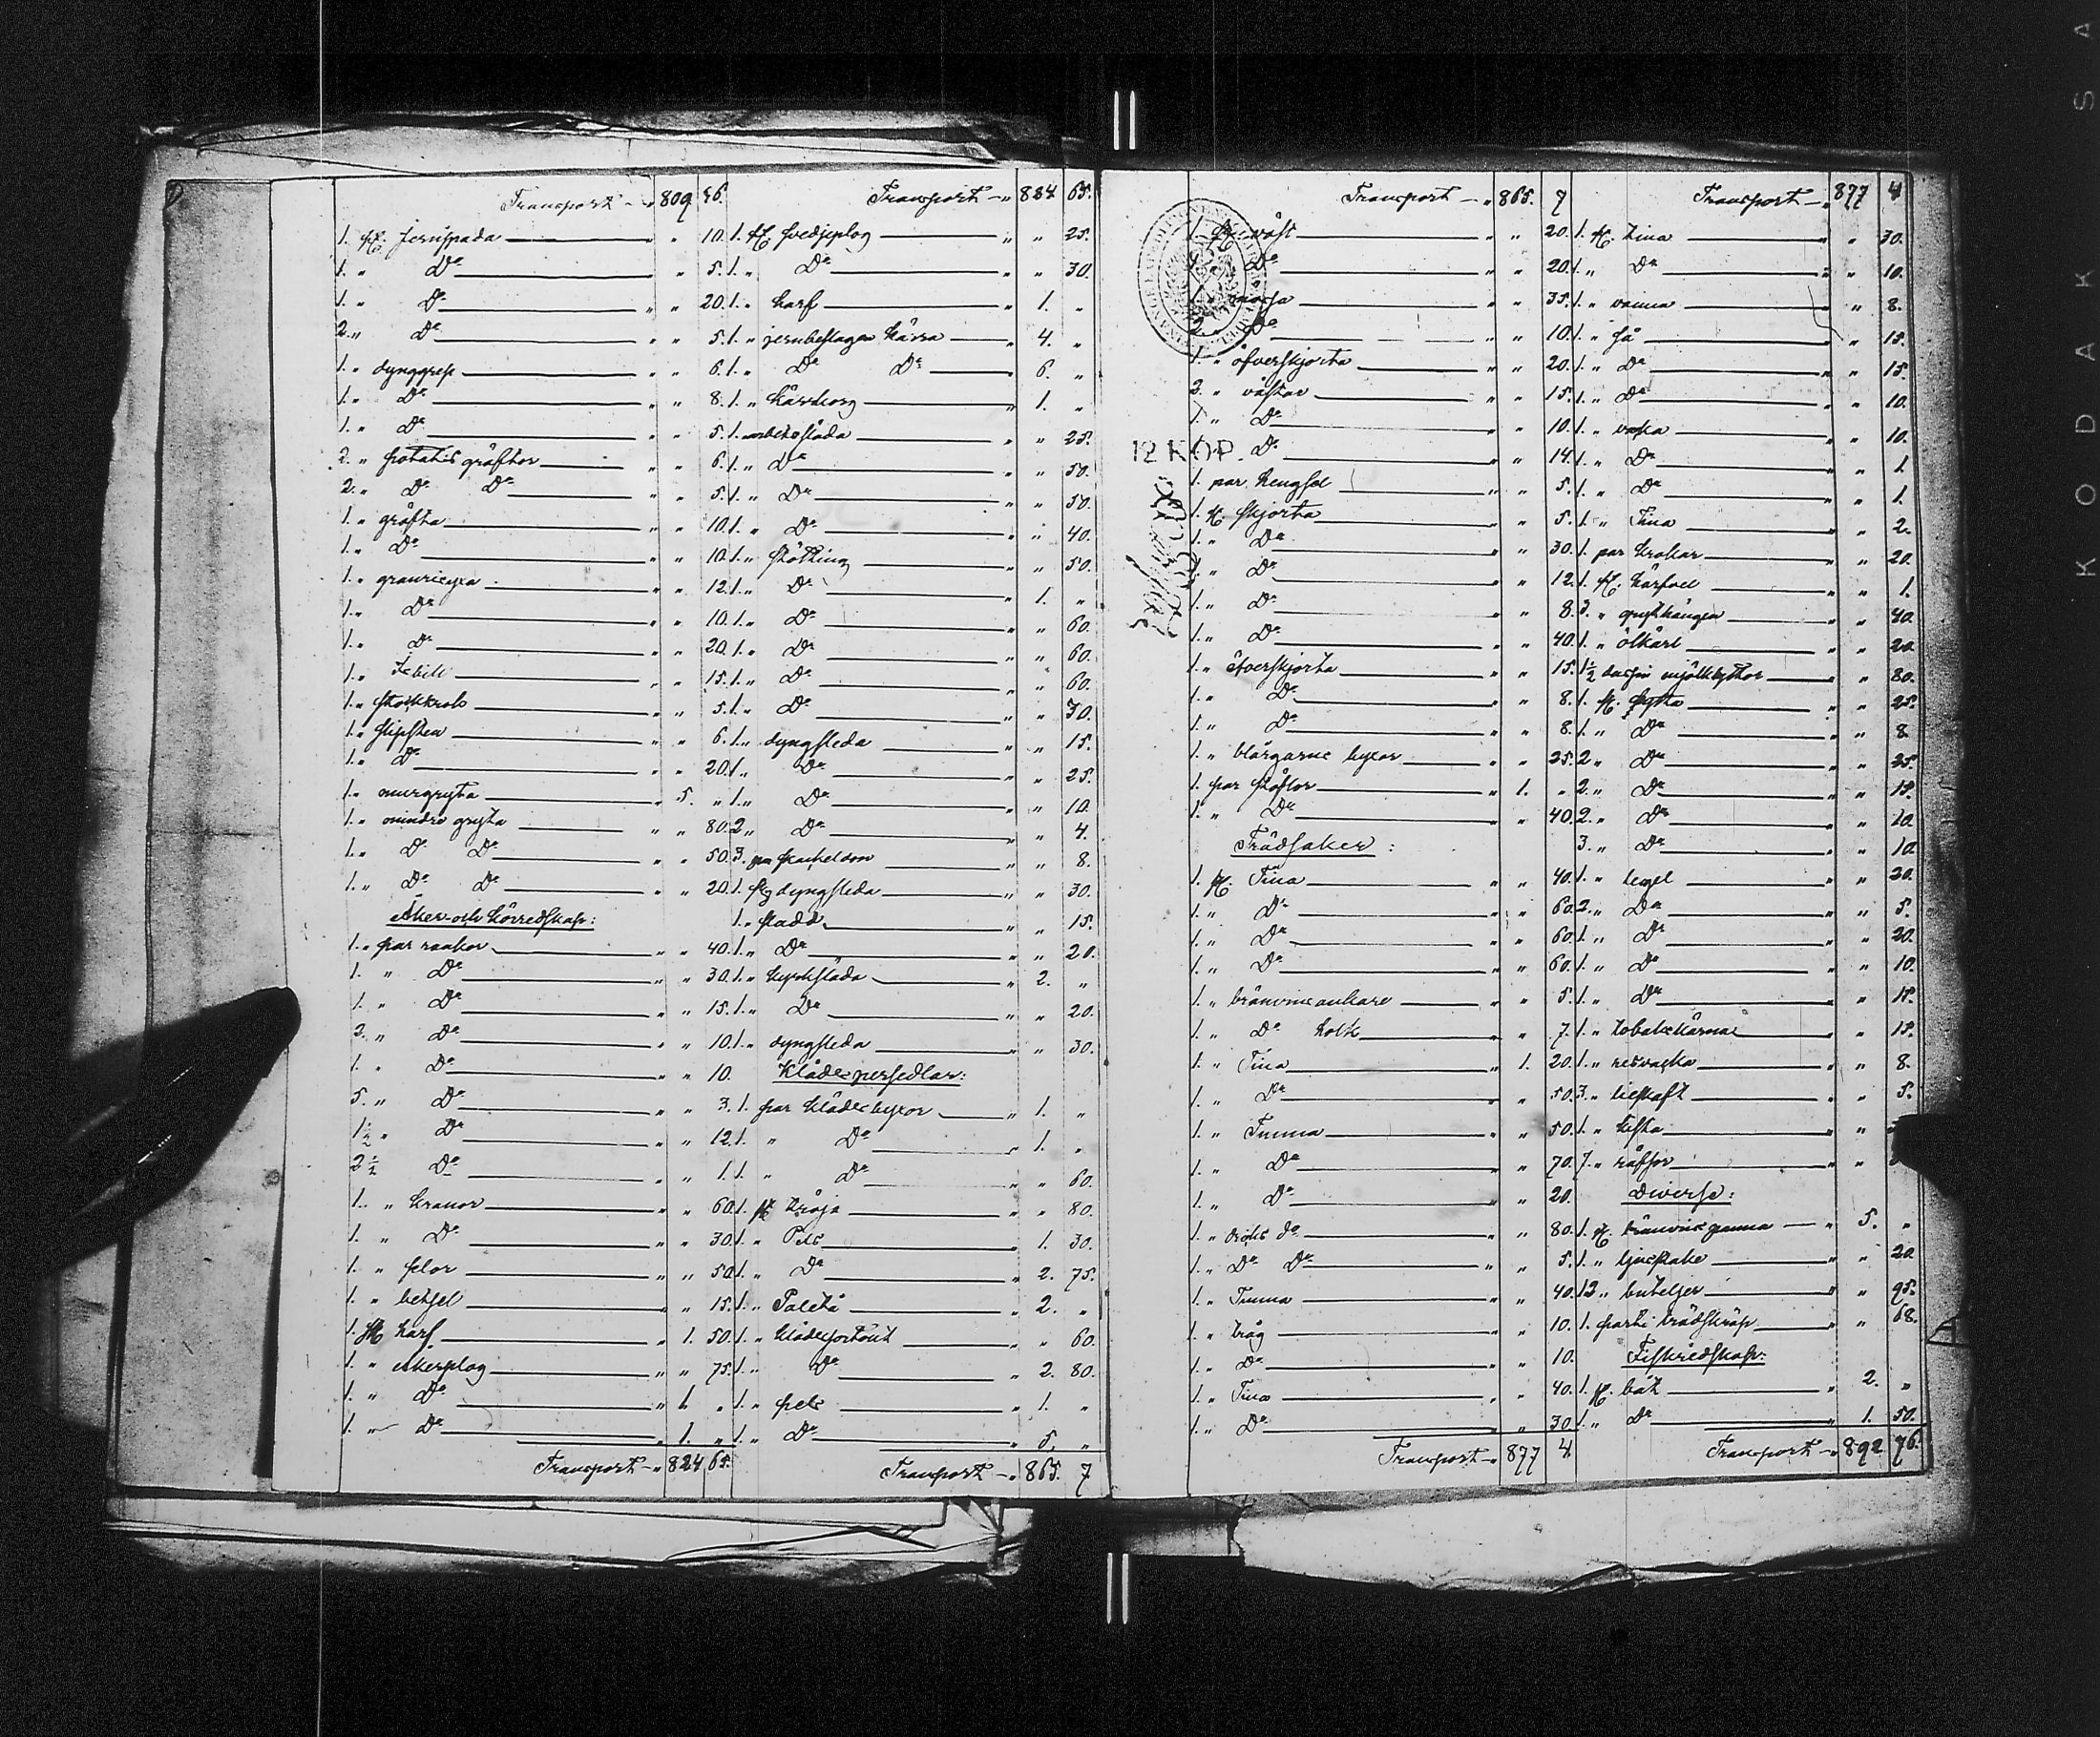 Transport — „ 809 46.
1. st. jernspada „ „ 10.
1. „ D:o „ „ 5.
1. „ D:o „ „ 20.
2. „ D:o „ „ 5.
1. „ dynggrep „ „ 6.
1. „ D:o „ „ 8.
1. „ D:o „ „ 5.
2. „ potatis gräftor „ „ 6.
2. „ D:o D:o „ „ 5.
1. „ gräfta „ „ 10.
1. „ D:o „ „ 10.
1. „ „ „ 12.
1. „ D:o „ „ 10.
1. „ D:o „ „ 20.
1. „ Isbill „ „ 15.
1. „ „ „ 5.
1. „ slipsten „ „ 6.
1. „ D:o „ „ 20.
1. „ murgryta „ 5. „
1. „ mindre gryta „ „ 80.
1. „ D:o D:o „ „ 50.
1. „ D:o D:o „ „ 20.
Åker- och körredskap:
1. „ par rankor „ „ 40.
1. „ D:o „ „ 30.
1. „ D:o „ „ 15.
2. „ D:o „ „ 10.
1. „ D:o „ „ 10.
5. „ D:o „ „ 3.
1½ „ D:o „ „ 12.
2½ D:o „ „ 1.
1. „ kranor „ „ 60.
1. „ D:o „ „ 30.
1. „ selor „ „ 50.
1. „ betsel „ „ 15.
1. st. harf „ 1. 50.
1. „ åkerplog „ „ 75.
1. „ D:o „ 1. „
1. „ D:o „ 1. „
Transport — „ 824 65.
Transport — „ 824 65.
1. st. svedjeplog „ „ 25.
1. „ D:o „ „ 30.
1. „ harf „ 1. „
1. „ jernbeslagen kärra „ 4. „
1. „ D:o D:o „ 6. „
1. „ kärrkorg „ 1. „
1. arbetssläda „ „ 25.
1. „ D:o „ „ 50.
1. „ D:o „ „ 50.
1. „ D:o „ „ 40.
1. „ stötting „ „ 50.
1. „ D:o „ 1. „
1. „ D:o „ „ 60.
1. „ D:o „ „ 60.
1. „ D:o „ „ 60.
1. „ D:o „ „ 30.
1. „ dyngsleda „ „ 15.
1. „ D:o „ „ 25.
1. „ D:o „ „ 10.
2. „ D:o „ „ 4.
3. „ „ 8.
1. st. dyngsleda „ „ 30.
1. „ „ „ 15.
1. „ D:o „ „ 20.
1. „ kyrksläda „ 2. „
1. „ D:o „ „ 20.
1. „ dyngsleda „ „ 30.
Klädespersedlar:
1. par klädesbyxor „ 1. „
1. „ D:o „ 1. „
1. „ D:o „ „ 60.
1. st. tröja „ „ 80.
1. „ Pels „ 1. 30.
1. „ D:o „ 2. 75.
1. „ Paletå „ 2. „
1. „ klädesortout „ „ 60.
1. „ D:o „ 2. 80.
1. „ pels „ 1. „
1. „ D:o „ 5. „
Transport — „ 865. 7
Transport — „ 865. 7
1. st. väst „ „ 20.
1. „ D:o „ „ 20.
1. „ mössa „ „ 35.
2. „ D:o „ „ 10.
1. „ öfverskjorta „ „ 20.
2. „ västar „ „ 15.
1. „ D:o „ „ 10.
12 KOP. D:o „ „ 14.
1. par hengsel „ „ 5.
1. st. skjorta „ „ 5.
1. „ D:o „ „ 30.
1. „ D:o „ „ 12.
1. „ D:o „ „ 8.
1. „ D:o „ „ 40.
1. „ öfverskjorta „ „ 15.
1. „ D:o „ „ 8.
1. „ D:o „ „ 8.
1. „ blårgarns byxor „ „ 25.
1. par stöflor „ 1. „
1. „ D:o „ „ 40.
Trädsaker:
1. st. Tina „ „ 40.
1. „ D:o „ „ 60.
1. „ D:o „ „ 60.
1. „ D:o „ „ 60.
1. „ bränvins ankare „ „ 5.
1. „ D:o holk „ „ 7.
1. „ Tina „ 1. 20.
1. „ D:o „ „ 50.
1. „ Tunna „ „ 50.
1. „ D:o „ „ 70.
1. „ D:o „ „ 20.
1. „ dricks d:o „ „ 80.
1. „ D:o D:o „ „ 5.
1. „ Tunna „ „ 40.
1. „ tråg „ „ 10.
1. „ D:o „ „ 10.
1. „ Tina „ „ 40.
1. „ D:o „ „ 30.
Transport — „ 877 4
Transport — „ 877 4
1. st. tina „ „ 30.
1. „ D:o „ „ 10.
1. „ vanna „ „ 8.
1. „ så „ „ 15.
1. „ D:o „ „ 15.
1. „ D:o „ „ 10.
1. „ „ „ 10.
1. „ D:o „ „ 1.
1. „ D:o „ „ 1.
1. „ Tina „ „ 2.
1. par krokar „ „ 20.
1. st. „ „ 1.
3. „ „ „ 40.
1. „ ölkärl „ „ 20.
1½ dussin mjölkbyttor „ „ 80.
1. st. bytta „ „ 25.
1. „ D:o „ „ 8.
2. „ D:o „ „ 25.
2. „ D:o „ „ 15.
2. „ D:o „ „ 10.
3. „ D:o „ „ 10.
1. „ „ „ 20.
2. „ D:o „ „ 5.
1. „ D:o „ „ 20.
1. „ D:o „ „ 10.
1. „ D:o „ „ 15.
1. „ „ „ 15.
1. „ resväska „ „ 8.
3. „ lieskaft „ „ 5.
1. „ kista „ „
7. „ räfsor „ „
Diverse:
1. st. bränvins panna — „ 5. „
1. „ ljusstake „ „ 20.
13 „ buteljer „ „ 95.
1. parti trädskräp „ „ 68.
Fiskredskap:
1. st. båt „ 2. „
1. „ D:o „ 1. 50.
Transport — „ 892 76.
KODAK SA